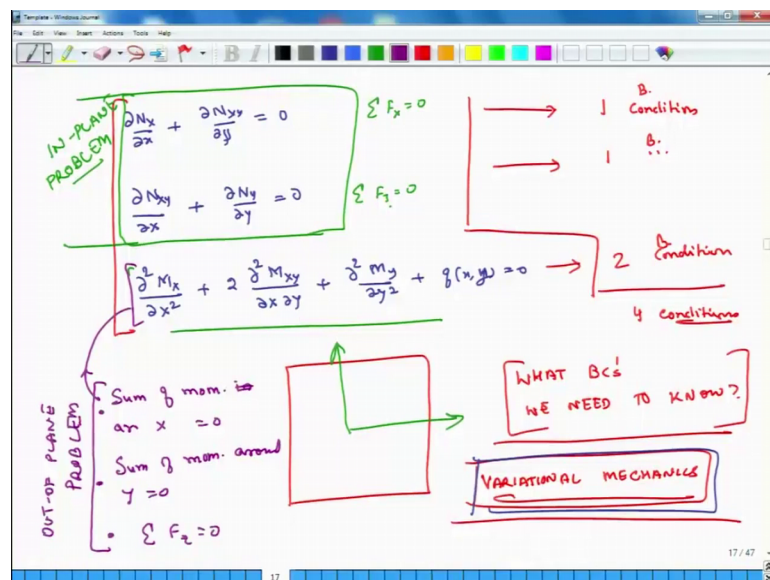 Template - Windows Journal
File Edit View Insert Actions Tools Help
IN-PLANE PROBLEM
∂Nx/∂x + ∂Nxy/∂y = 0
Σ Fx = 0
1 B. Conditions
∂Nxy/∂x + ∂Ny/∂y = 0
Σ Fy = 0
1 B. ...
∂²Mx/∂x² + 2 ∂²Mxy/∂x∂y + ∂²My/∂y² + q(x,y) = 0
2 B. Condition
4 conditions
OUT-OF PLANE PROBLEM
• Sum of mom.
ar x = 0
• Sum of mom. around
y = 0
• Σ Fz = 0
WHAT BCs'
WE NEED TO KNOW?
VARIATIONAL MECHANICS
17 / 47
17